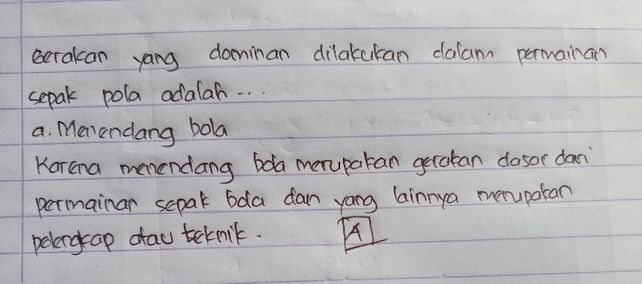 Gerakan yang dominan dilakukan dalam permainan
sepak pola adalah...
a. Menendang bola
Karena menendang bola merupakan gerakan dasar dari
permainan sepak bola dan yang lainnya merupakan
pelengkap atau teknik. A